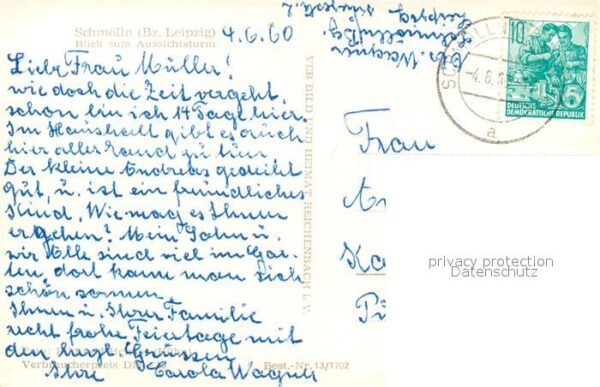 Schmölln (Bz. Leipzig)
Blick zum Aussichtsturm
4.6.60
Liebe Frau Müller!
wie doch die Zeit vergeht,
schon bin ich 14 Tage hier.
Im Haushalt gibt es auch
hier allerhand zu tun.
Der kleine Andreas gedeiht
gut, u. ist ein freundliches
Kind. Wie mag es Ihnen
ergehen? Mein Sohn u.
wir Alle sind viel im Gar-
ten, dort kann man sich
schön sonnen.
Ihnen u. Ihrer Familie
recht frohe Feiertage mit
den herzl. Grüssen
Ihre Carola Wagner
Verbraucherpreis
Best.-Nr. 13/1702
VEB BILD UND HEIMAT REICHENBACH I. V.
C. Wagner
Schmölln
Leipzig
Frau
10
DEUTSCHE
DEMOKRATISCHE REPUBLIK
SCHMÖLLN
-4.6.
a
privacy protection
Datenschutz